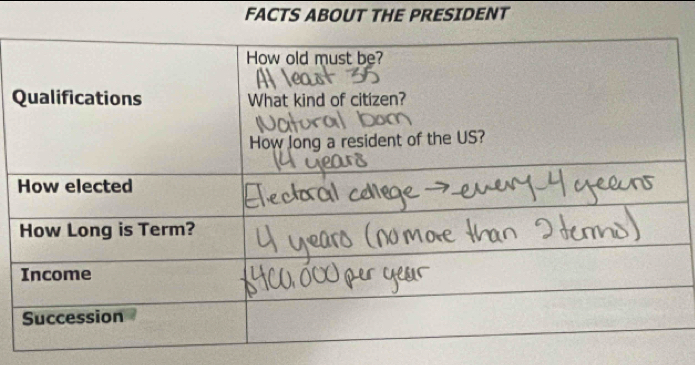 FACTS ABOUT THE PRESIDENT
Qualifications
How old must be?
At least 35
What kind of citizen?
Natural born
How long a resident of the US?
14 years
How elected
Electoral college → every 4 years
How Long is Term?
4 years (no more than 2 terms)
Income
$400,000 per year
Succession